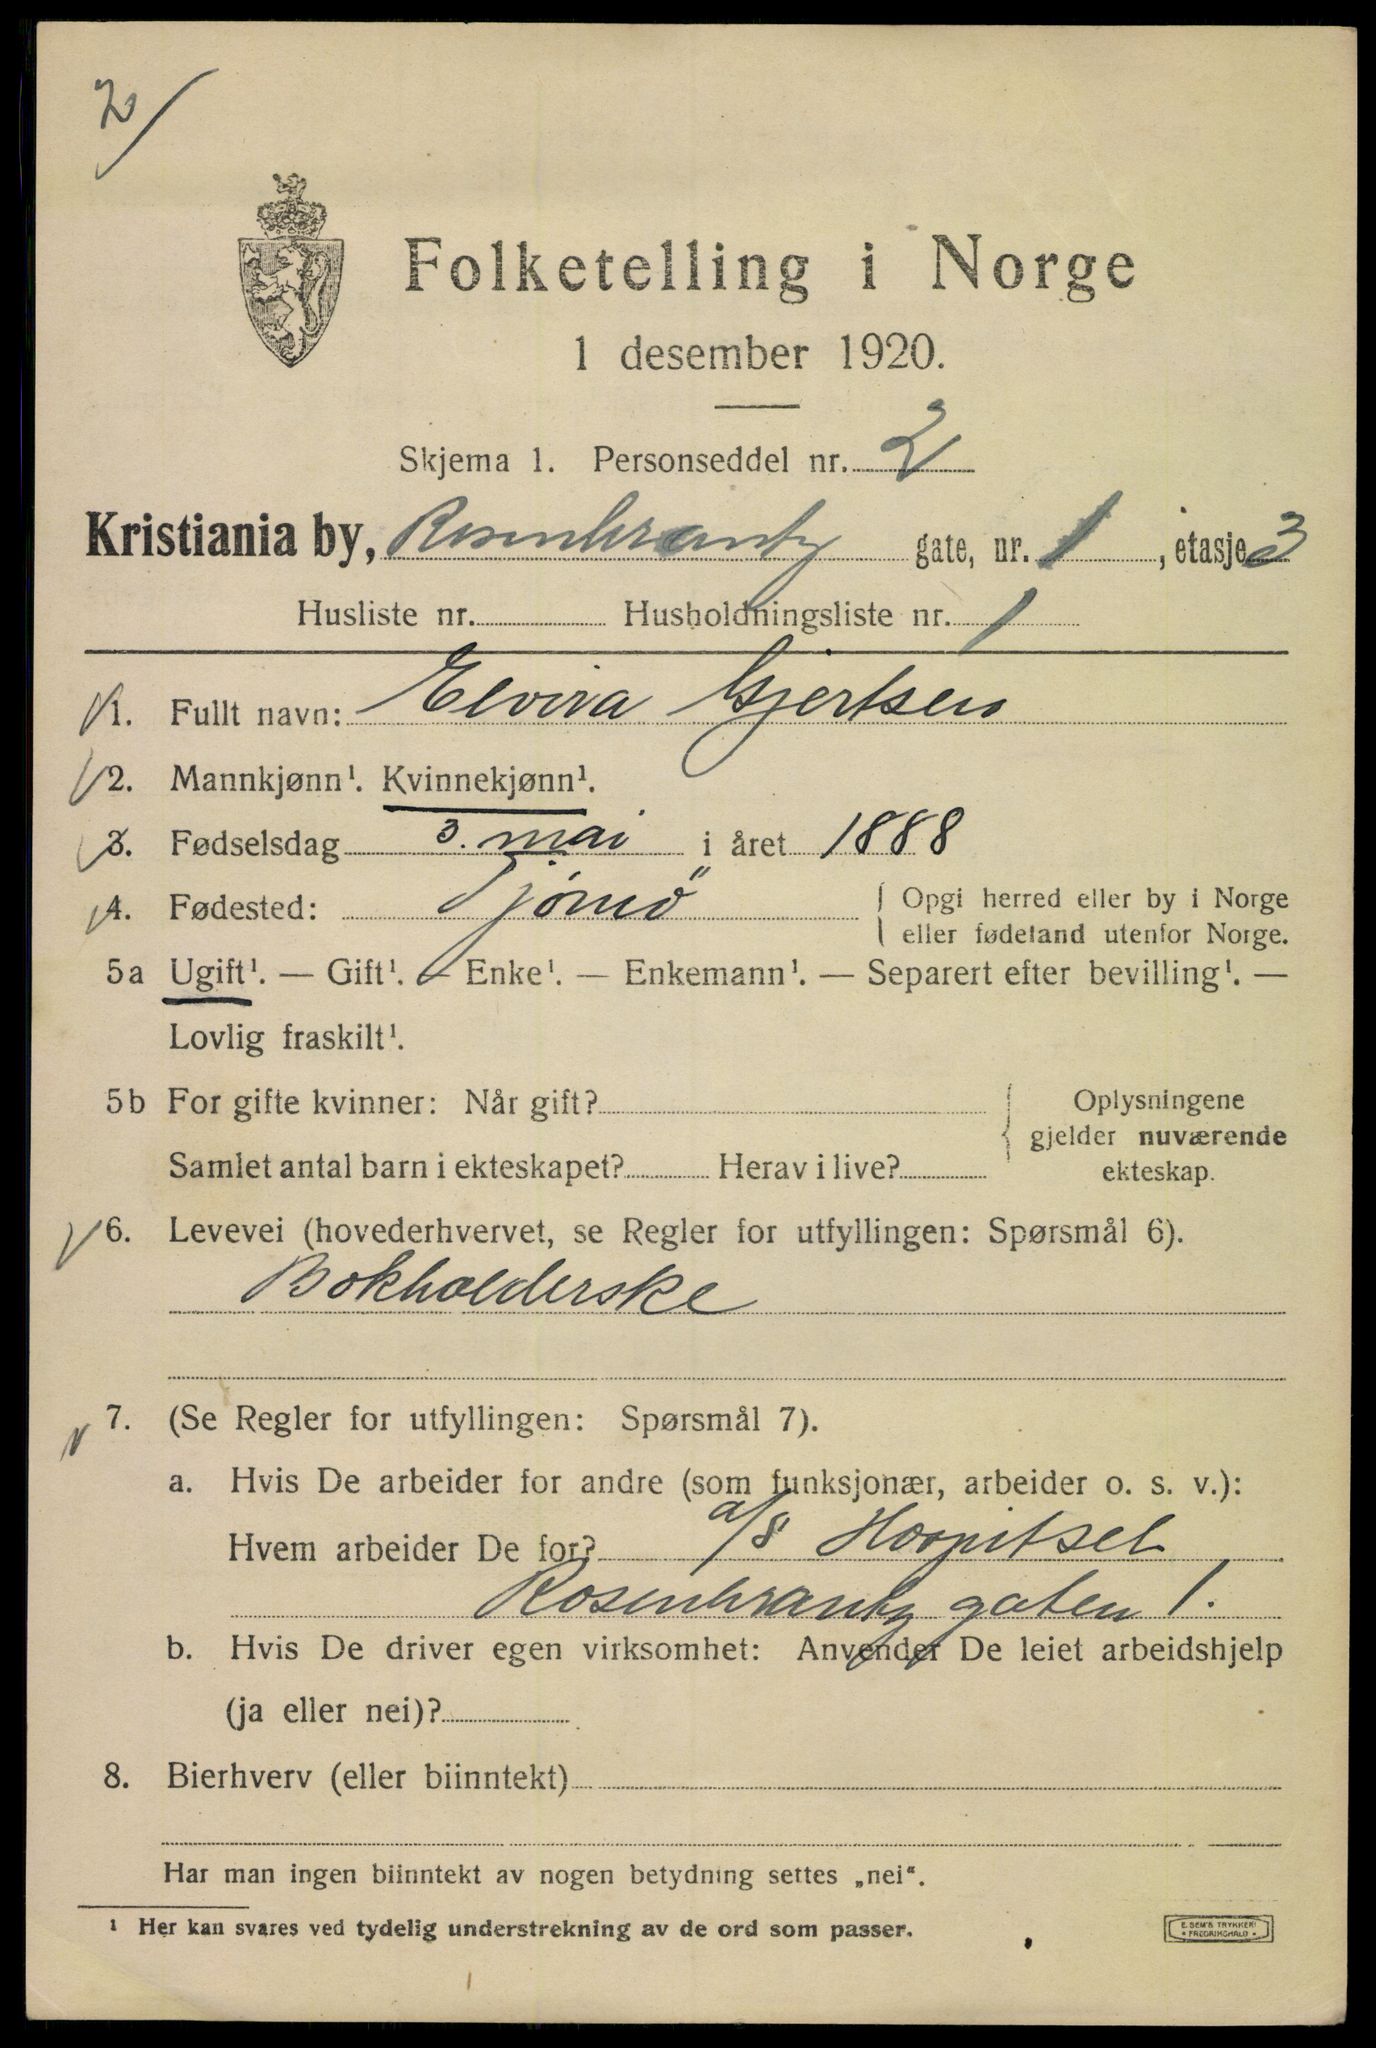 2/
Folketelling i Norge
1 desember 1920.
Skjema 1. Personseddel nr. 2
Kristiania by, Rosenkrantz gate, nr. 1, etasje 3
Husliste nr. Husholdningsliste nr. 1
1. Fullt navn: Elvira Gjertsen
2. Mannkjønn¹. Kvinnekjønn¹.
3. Fødselsdag 3. mai i året 1888
4. Fødested: Tjömö { Opgi herred eller by i Norge
eller fødeland utenfor Norge.
5a Ugift¹. — Gift¹. — Enke¹. — Enkemann¹. — Separert efter bevilling¹. —
Lovlig fraskilt¹.
5b For gifte kvinner: Når gift? { Oplysningene
gjelder nuværende
Samlet antal barn i ekteskapet? Herav i live? ekteskap.
6. Levevei (hovederhvervet, se Regler for utfyllingen: Spørsmål 6).
Bokholderske
7. (Se Regler for utfyllingen: Spørsmål 7).
a. Hvis De arbeider for andre (som funksjonær, arbeider o. s. v.):
Hvem arbeider De for? a/s Hospitset
Rosenkrantz gaten 1.
b. Hvis De driver egen virksomhet: Anvender De leiet arbeidshjelp
(ja eller nei)?
8. Bierhverv (eller biinntekt)
Har man ingen biinntekt av nogen betydning settes „nei“.
¹ Her kan svares ved tydelig understrekning av de ord som passer.
E. SEM'S TRYKKERI
• FREDRIKSHALD •